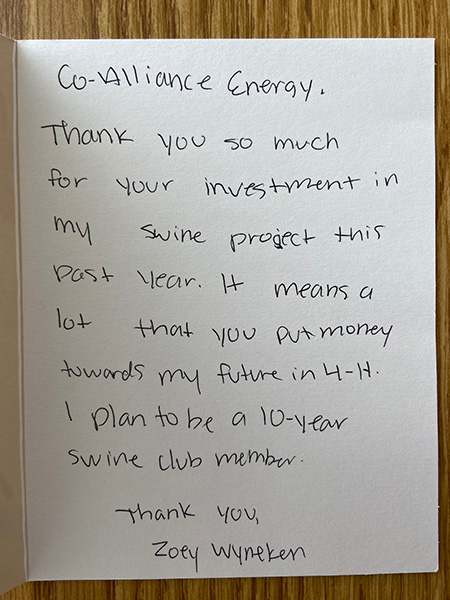 Co-Alliance Energy.
Thank you so much
for your investment in
my swine project this
past year. It means a
lot that you put money
towards my future in 4-H.
I plan to be a 10-year
swine club member.
Thank you,
Zoey Wyneken